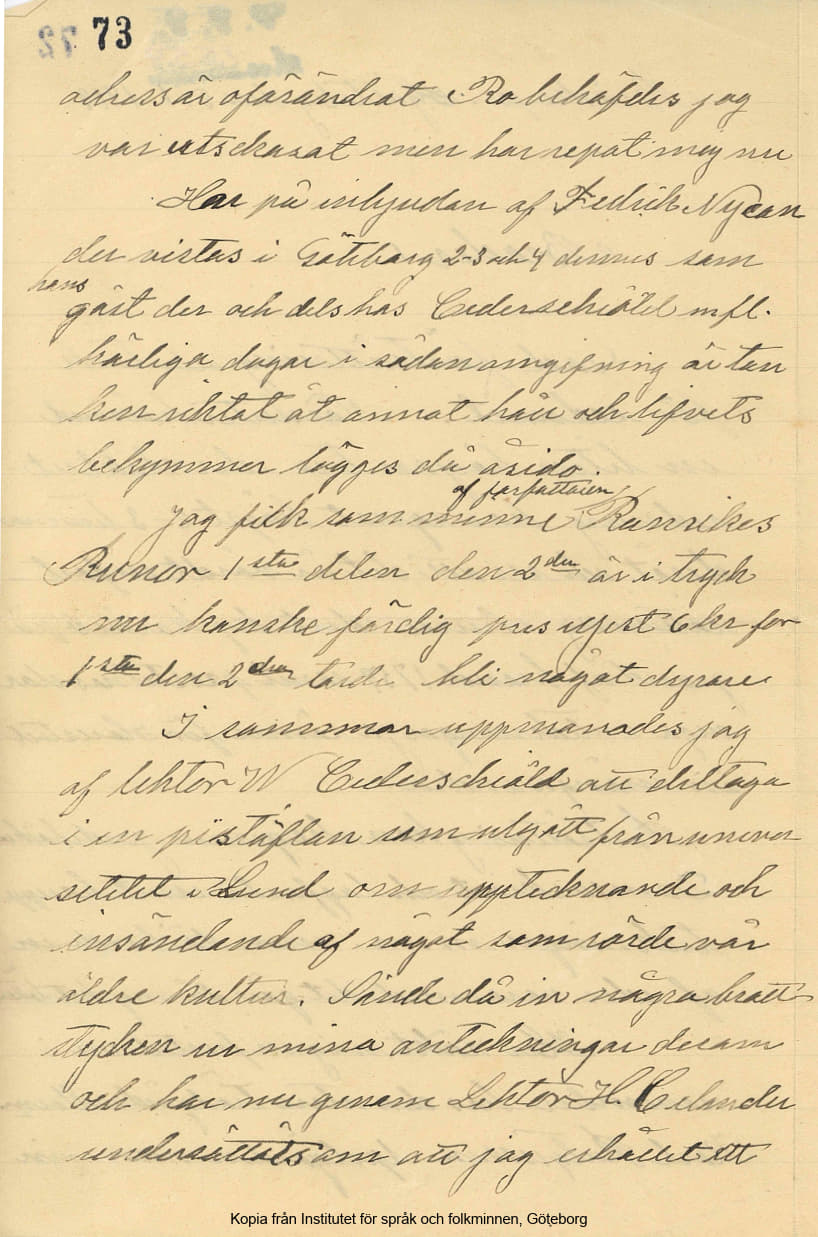 73
adress är oförändrat Ro behöfdes jag
var utschasat men har repat mig nu
Har på inbjudan af Fedrik Nycan
der vistas i Göteborg 2-3 och 4 dennes som
hans
gäst der och dels hos Cederschiöld mfl.
härliga dagar i sådan omgifning är tan
ken riktat åt annat håll och lifvets
bekymmer lägges då åsido.
af författaren
Jag fick som minne Ranrikes
Runor 1sta delen den 2dra är i tryck
nu kanske färdig pris 6 kr for
1sta den 2dra torde bli något dyrare
I sommar uppmanades jag
af lektor W Cederschiöld att deltaga
i en pristäflan som utgått från univer
sitetet i Lund om upptecknande och
insändande af något som rörde vår
äldre kultur. Sände då in några brott
stycken ur mina anteckningar derom
och har nu genom Lektor H. Celander
underrättats om att jag erhållit ett
Kopia från Institutet för språk och folkminnen, Göteborg